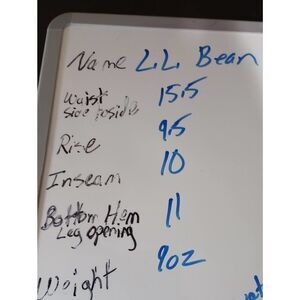 Name LL Bean
Waist 15.5
side to side
Rise 9.5
Inseam 10
Bottom Hem 11
Leg opening
Weight 9oz